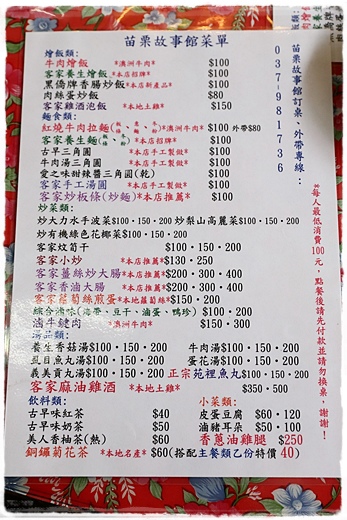 苗栗故事館菜單
燴飯類:
牛肉燴飯 *澳洲牛肉* $100
客家養生燴飯 *本店招牌* $100
黑僑牌香腸炒飯 *本店新產品* $100
肉絲蛋炒飯 $80
客家雞酒泡飯 *本店土雞* $150
麵食類:
紅燒牛肉拉麵 *澳洲牛肉* $100 外帶$80
客家養生麵 *本店招牌* $100
古早三角圓 *本店手工製做* $100
牛肉湯三角圓 *本店手工製做* $100
愛之味甜辣醬三角圓(乾) $100
客家手工湯圓 *本店手工製做* $100
客家炒板條(炒麵) *本店推薦* $100
炒菜類:
炒大力水手波菜$100·150·200 炒梨山高麗菜$100·150·200
炒有機綠色花椰菜$100·150·200
客家炆筍干 $100·150·200
客家小炒 *本店推薦* $130·250
客家薑絲炒大腸 *本店推薦* $200·300·400
客家香滷大腸 *本店推薦* $200·300·400
客家蘿蔔絲煎蛋 *本地蘿蔔絲* $150·200
綜合滷味(海帶、豆干、滷蛋、鴨珍) $100·200
滷牛腱肉 *澳洲牛肉* $150·300
湯品類:
養生香菇湯$100·150·200 牛肉湯$100·150·200
虱目魚丸湯$100·150·200 蛋花湯$100·150·200
義美貢丸湯$100·150·200 正宗苑裡魚丸$100·150·200
客家麻油雞酒 *本地土雞* $350·500
飲料類: 小菜類:
古早味紅茶 $40 皮蛋豆腐 $60·120
古早味奶茶 $50 滷豬耳朵 $50·100
美人香柚茶(熱) $60 香蔥油雞腿 $250
銅鑼菊花茶 *本地名產* $60(搭配主餐類乙份特價 40)
苗栗故事館訂桌、外帶專線:
037-981736
*每人最低消費100元,點餐後請先付款並請勿換桌,謝謝!